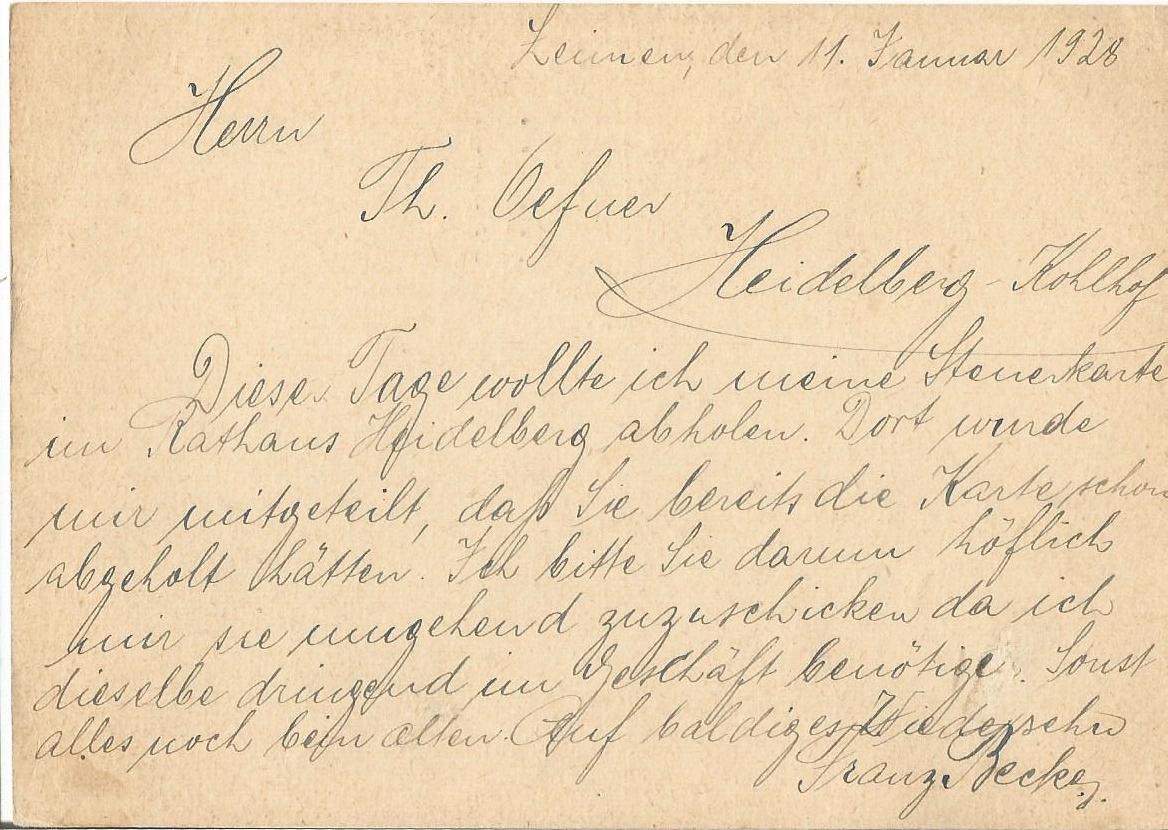 Leimen, den 11. Januar 1928
Herrn
Th. Oefner
Heidelberg - Kohlhof
Diese Tage wollte ich meine Steuerkarte
im Rathaus Heidelberg abholen. Dort wurde
mir mitgeteilt, daß Sie bereits die Karte schon
abgeholt hätten. Ich bitte Sie darum höflich
mir sie umgehend zuzuschicken da ich
dieselbe dringend im Geschäft benötige. Sonst
alles noch beim alten. Auf baldiges Wiedersehn
Franz Becker.